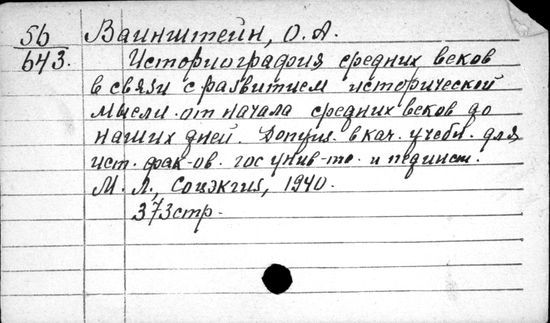 56 Вайнштейн, О. А.
643. Историография средних веков
в связи с развитием исторической
мысли от начала средних веков до
наших дней. Допущ. в кач. учебн. для
ист. фак-ов. гос унив-тов. и пединст.
М. Л., Соцэкгиз, 1940.
373 стр.